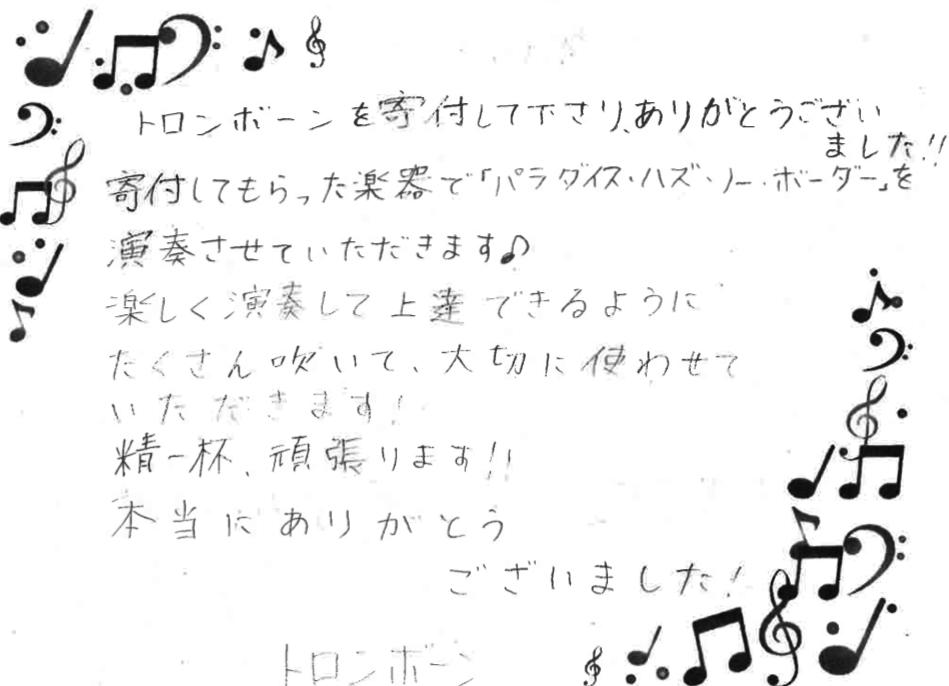 トロンボーンを寄付して下さり、ありがとうござい
ました!!
寄付してもらった楽器で「パラダイス・ハズ・ノー・ボーダー」を
演奏させていただきます♪
楽しく演奏して上達できるように
たくさん吹いて、大切に使わせて
いただきます!
精一杯、頑張ります!!
本当にありがとう
ございました!
トロンボーン